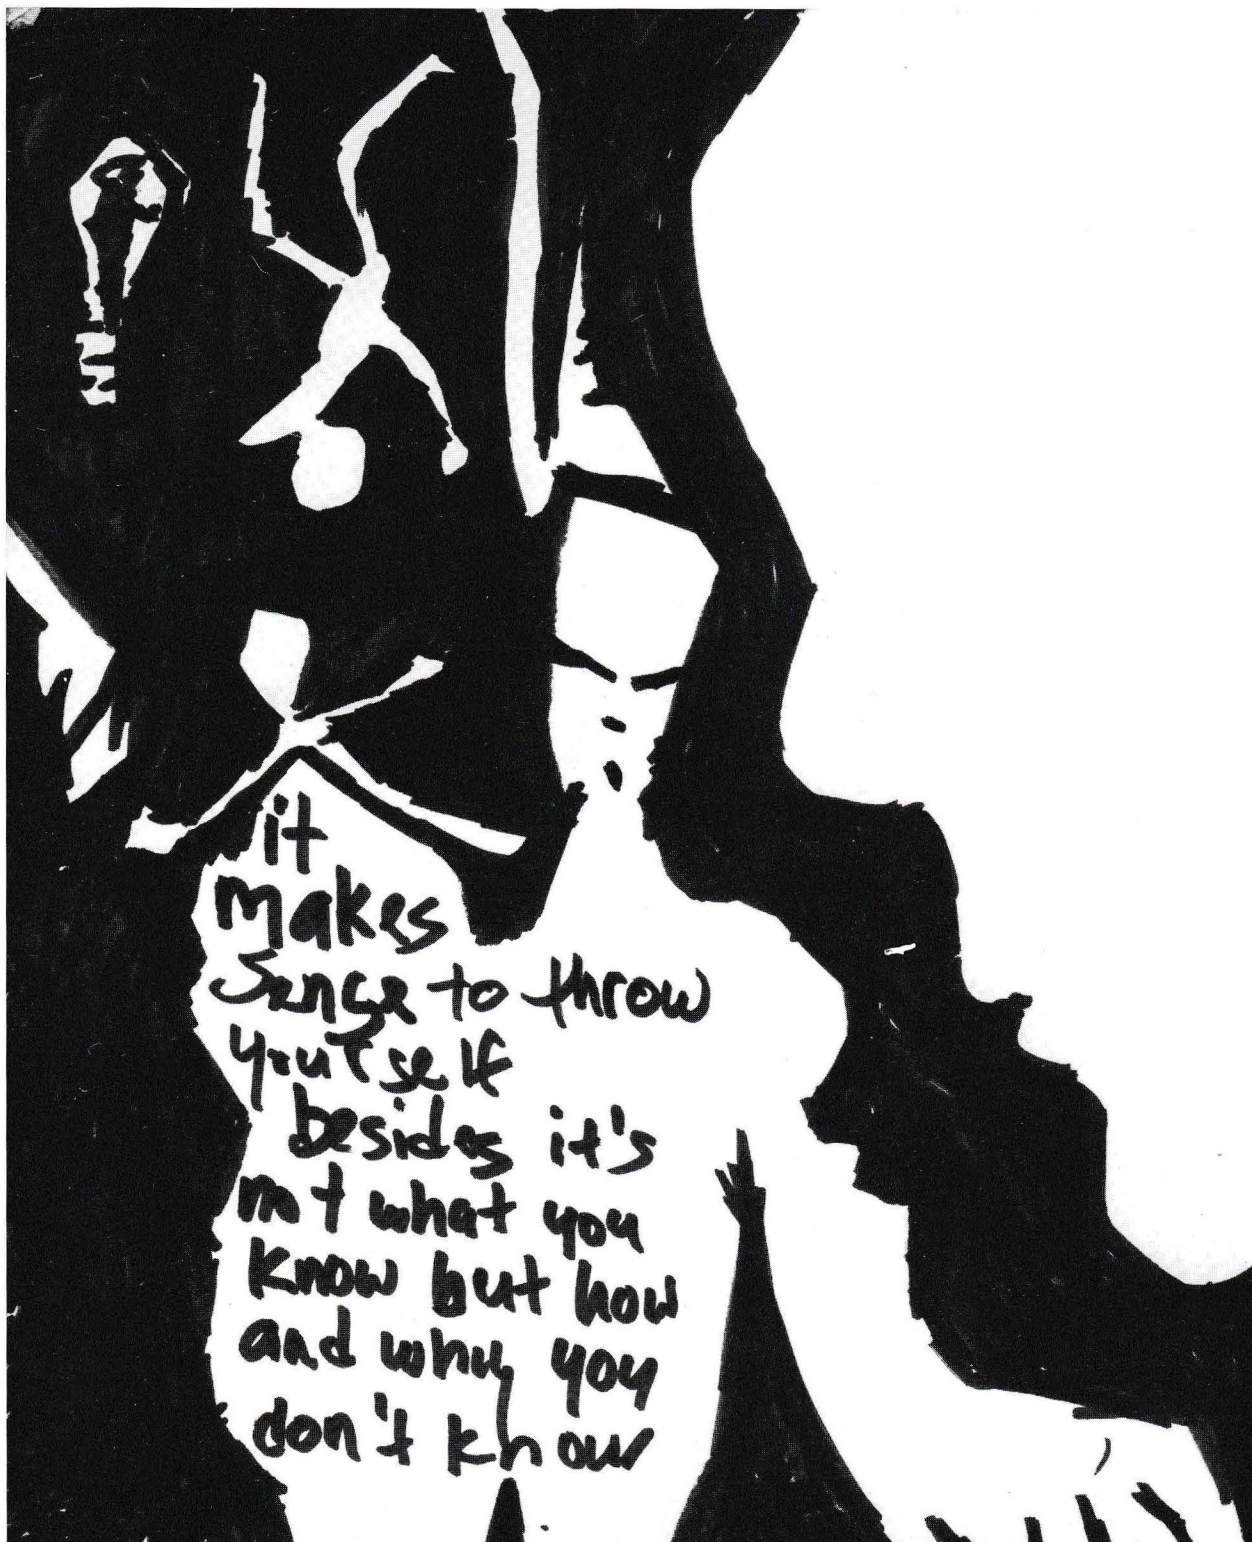 it
makes
Sense to throw
yourself
besides it's
not what you
know but how
and why you
don't know